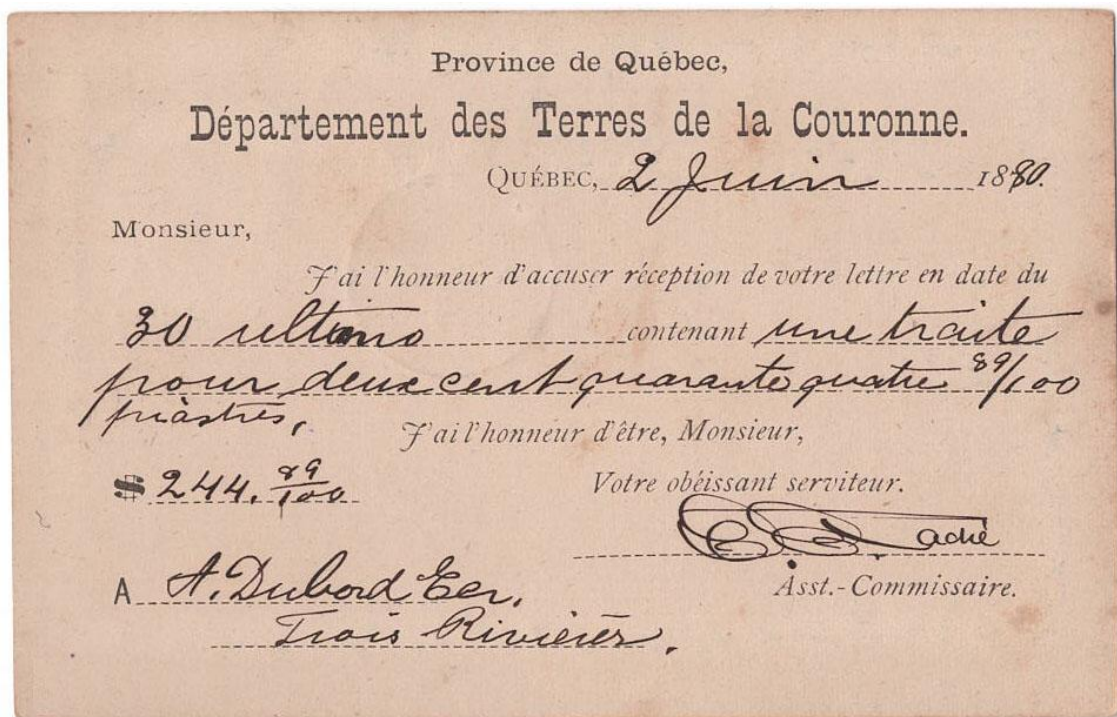 Province de Québec,
Département des Terres de la Couronne.
QUÉBEC, 2 Juin 1880.
Monsieur,
J'ai l'honneur d'accuser réception de votre lettre en date du
30 ultimo contenant une traite
pour deux cent quarante quatre 89/100
piastres,
J'ai l'honneur d'être, Monsieur,
$ 244. 89/100
Votre obéissant serviteur.
Taché
Asst.-Commissaire.
A A. Dubord Ecr.
Trois Rivières.